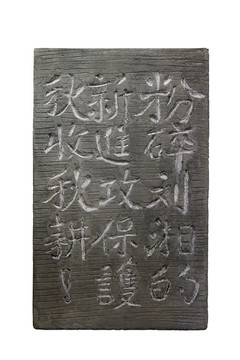 粉碎刘湘的
新進攻保護
秋收秋耕！